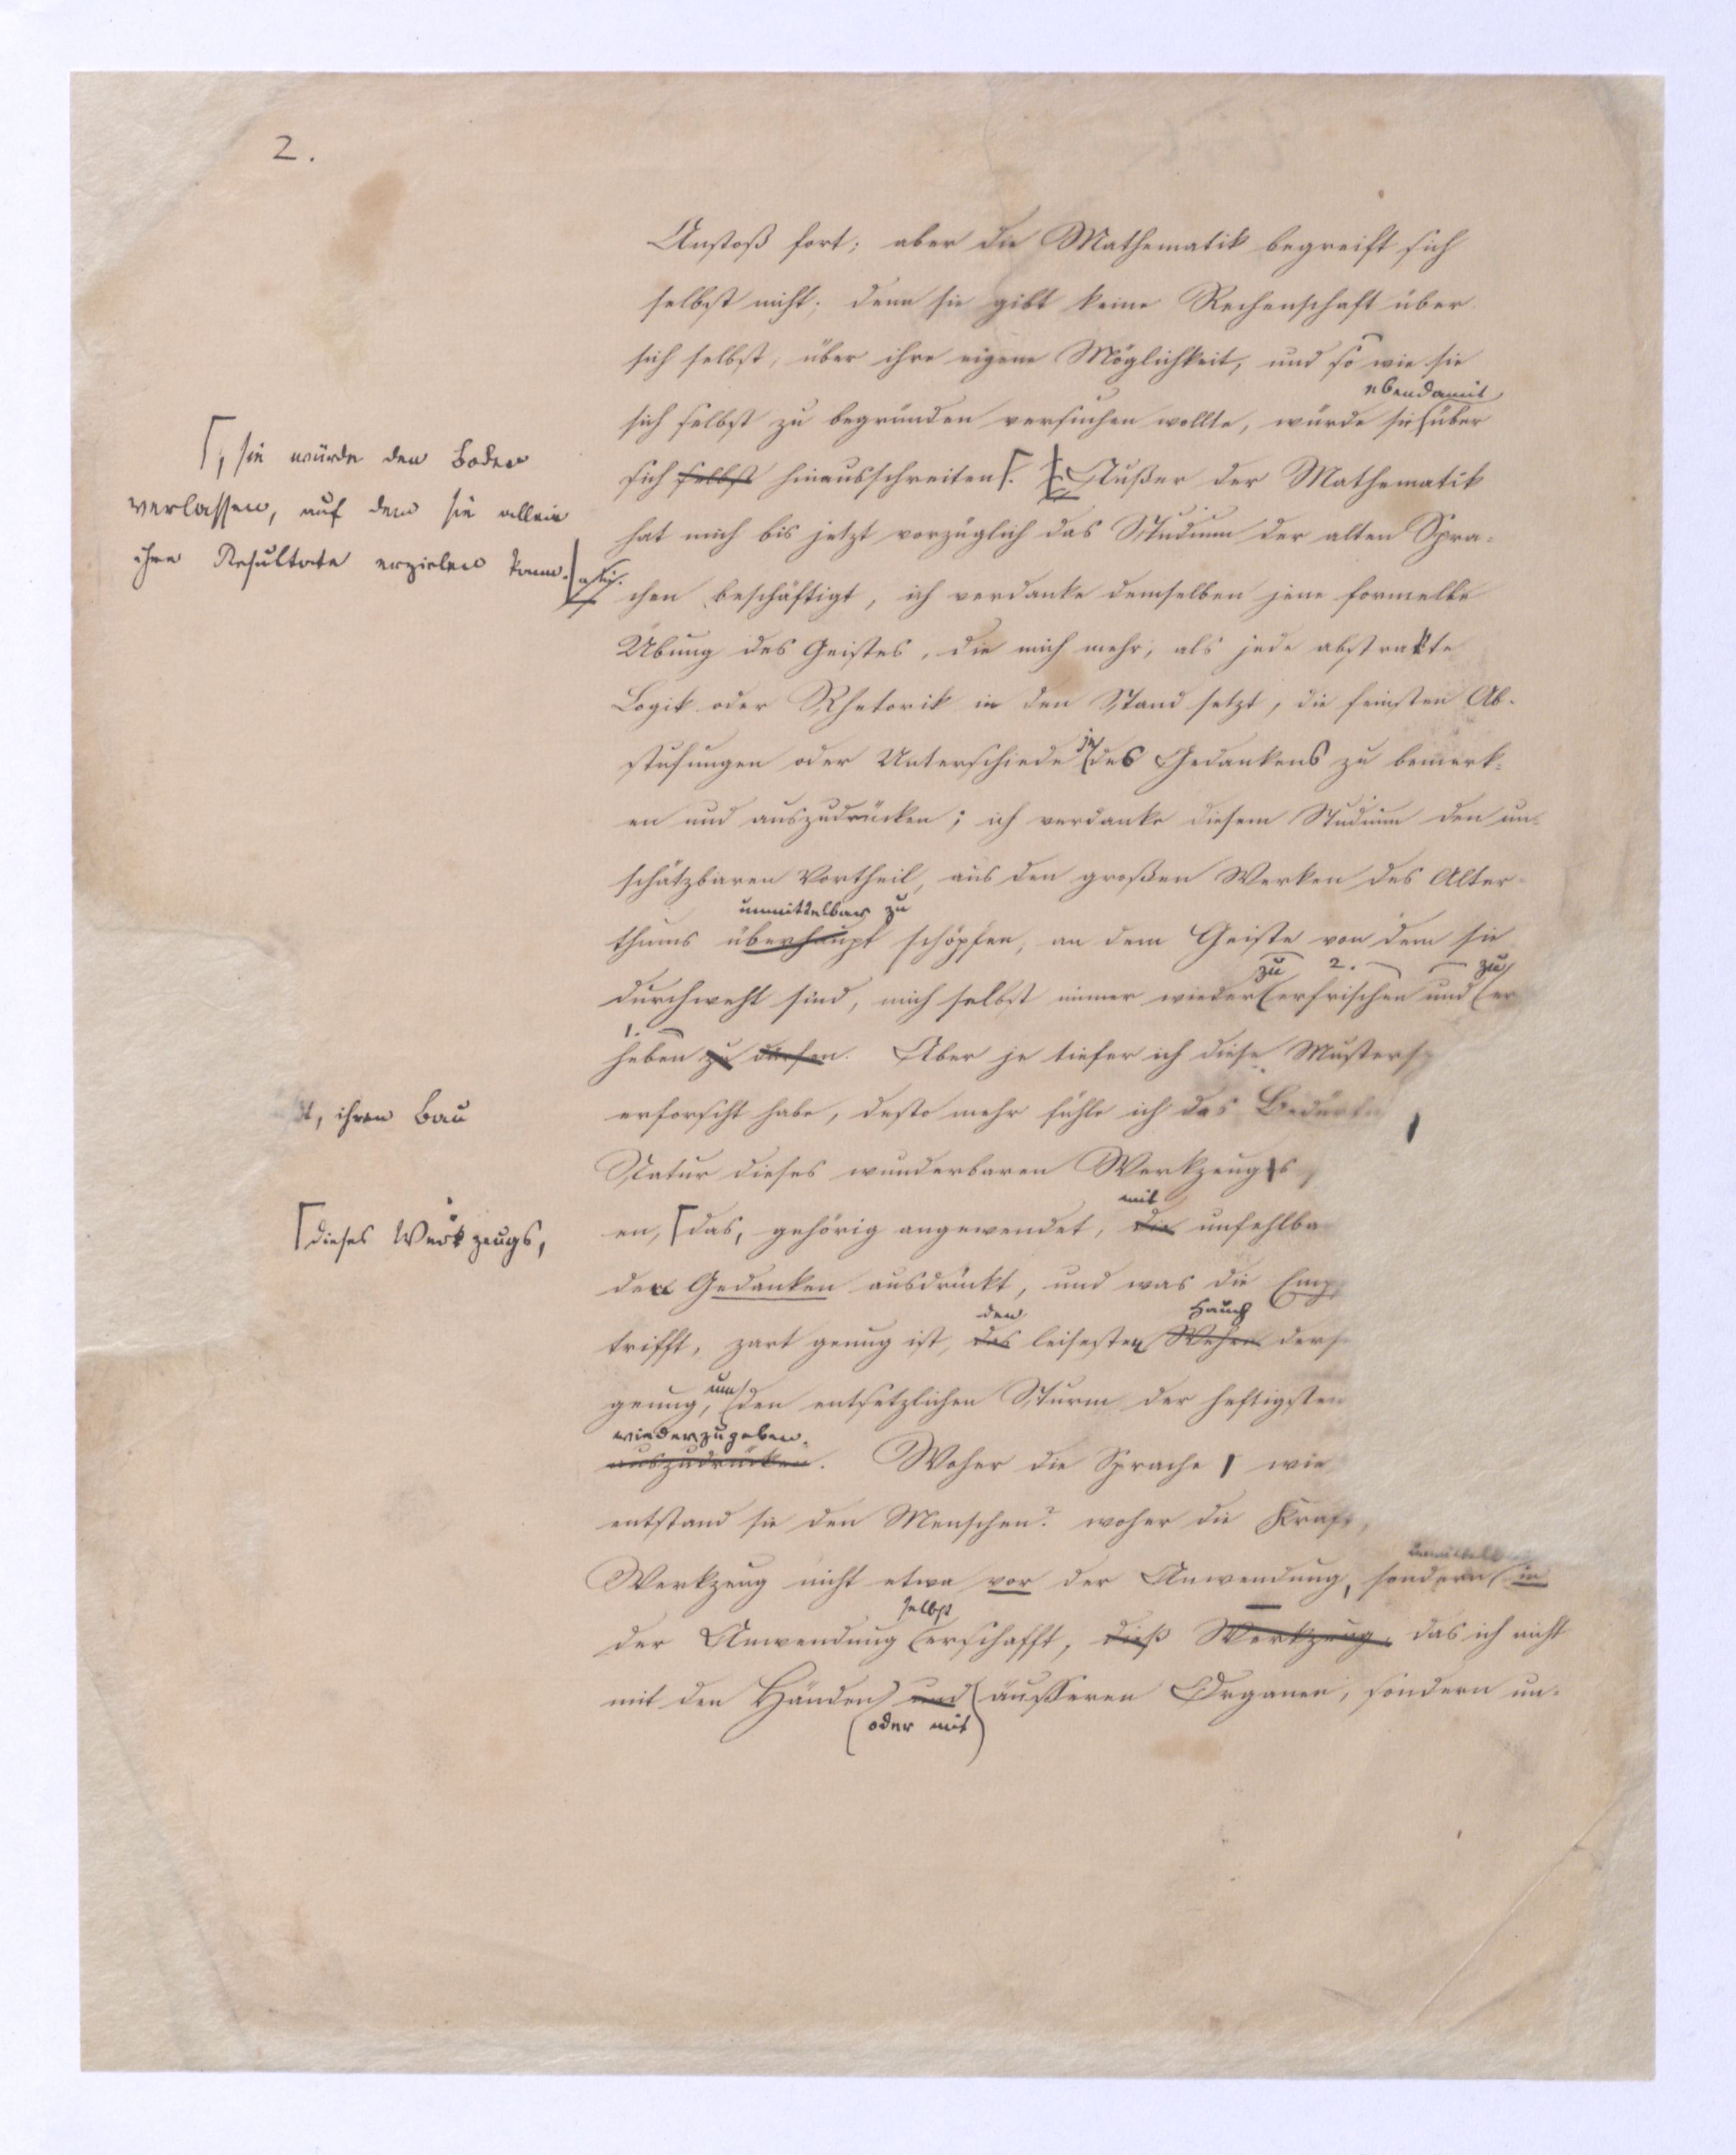 2.
Anstoß fort; aber die Mathematik begreift sich
selbst nicht; denn sie gibt keine Rechenschaft über
sich selbst, über ihre eigene Möglichkeit, und so wie sie
ebendamit
sich selbst zu begründen versuchen wollte, würde sie über
sich selbst hinausschreiten. Außer der Mathematik
⌈, sie würde den Boden
verlassen, auf dem sie allein
ihre Resultate erzielen kann.
hat mich bis jetzt vorzüglich das Studium der alten Spra-
chen beschäftigt, ich verdanke demselben jene formelle
Übung des Geistes, die mich mehr, als jede abstrakte
Logik oder Rhetorik in den Stand setzt, die feinsten Ab-
stufungen oder Unterschiede des Gedankens zu bemerk-
en und auszudrücken; ich verdanke diesem Studium den un-
schätzbaren Vortheil, aus den großen Werken des Alter-
unmittelbar zu
thums überhaupt schöpfen, an dem Geiste von dem sie
zu 2. zu
durchweht sind, mich selbst immer wieder erfrischen und er
1.
heben zu dürfen. Aber je tiefer ich diese Muster
erforscht habe, desto mehr fühle ich das
, ihren Bau
Natur dieses wunderbaren Werkzeugs
mit
en, ⌈das, gehörig angewendet, die unfehlba
⌈dieses Werkzeugs,
den Gedanken ausdrückt, und was die Emp
den Hauch
trifft, zart genug ist, das leisesten Wehen ders
um
genug, den entsetzlichen Sturm der heftigsten
wiederzugeben.
auszudrücken. Woher die Sprache wie
entstand sie den Menschen? woher die Kraft,
Werkzeug nicht etwa vor der Anwendung, sondern in
selbst
der Anwendung erschafft, dieß Werkzeug, das ich nicht
mit den Händen und äusseren Organen, sondern un-
(oder mit)